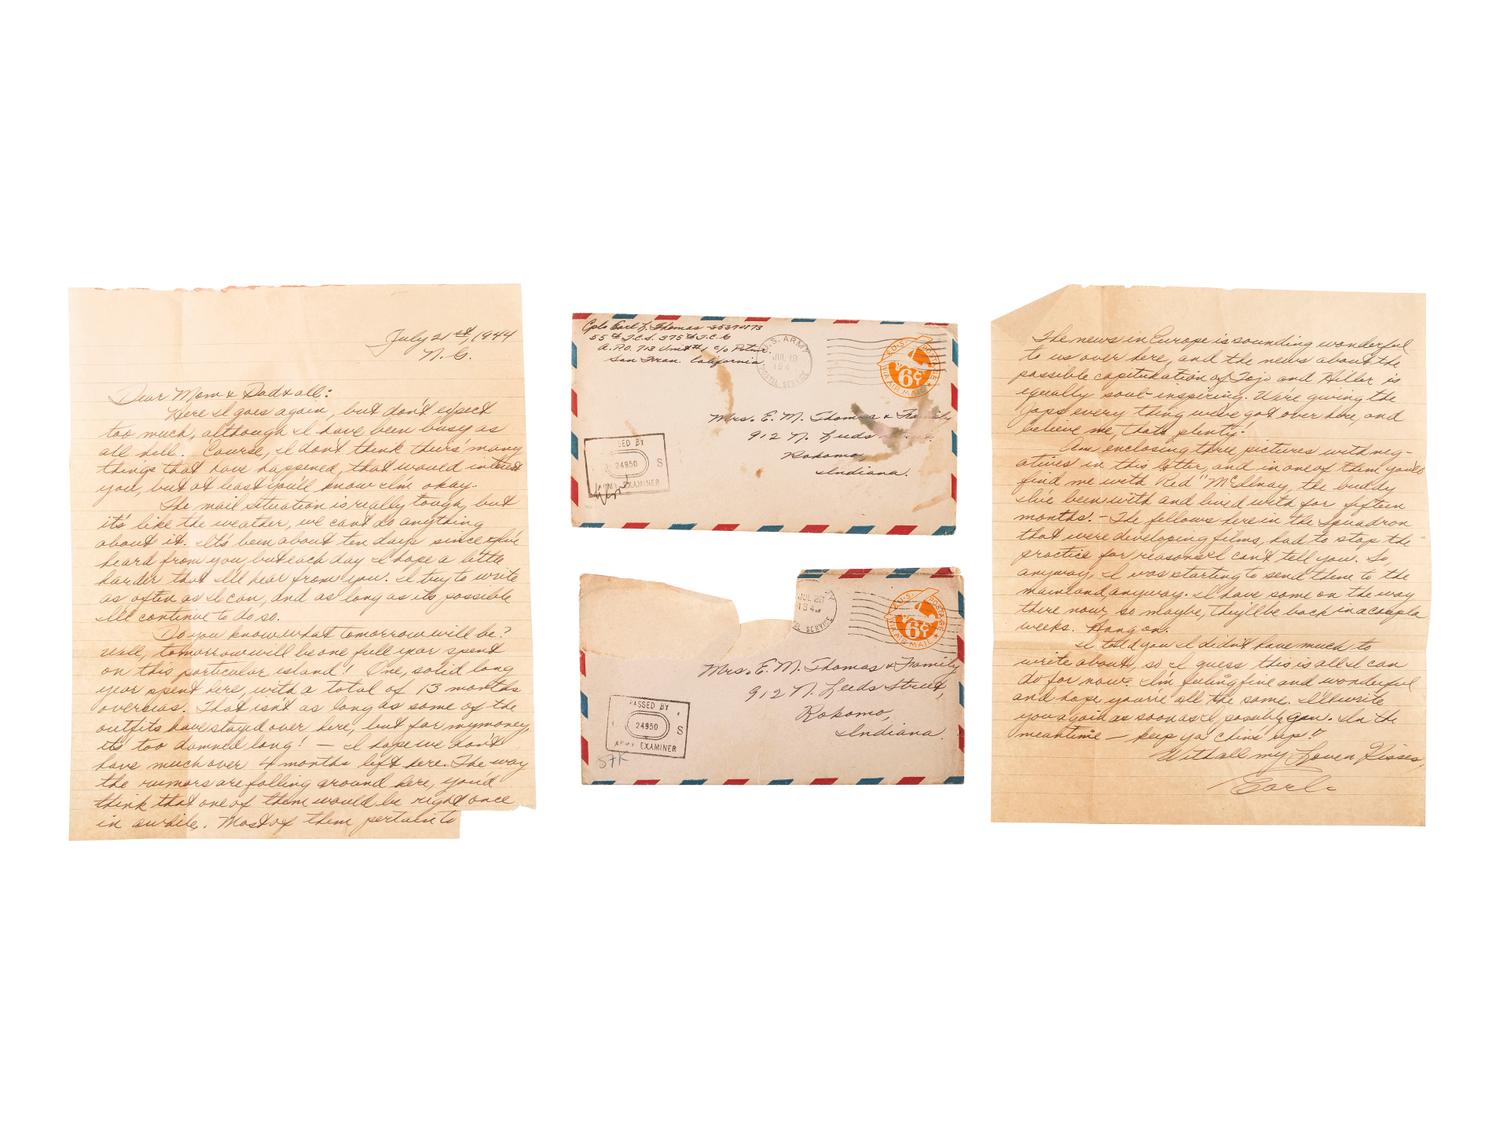 July 21st, 1944
N. G.
Dear Mom & Dad & all:
Here I goes again, but don't expect
too much, although I have been busy as
all hell. Course, I don't think there's many
things that have happened, that would interest
you, but at least you'll know I'm okay.
The mail situation is really tough, but
it's like the weather, we can't do anything
about it. It's been about ten days since I've
heard from you, but each day I hope a little
harder that I'll hear from you. I try to write
as often as I can, and as long as its possible
I'll continue to do so.
Do you know what tomorrow will be?
Well, tomorrow will be one full year spent
on this particular island! One, solid long
year spent here, with a total of 13 months
overseas. That isn't as long as some of the
outfits have stayed over here, but for my money,
it's too damned long! — I hope we don't
have much over 4 months left here. The way
the rumors are falling around here, you'd
think that one of them would be right once
in awhile. Most of them pertain to
Cpl. Earl L. Thomas
55th T.C.S. 375th T.C.G.
A.P.O. 713 Unit #1 c/o Pstmr.
San Fran. California
U.S. ARMY
JUL 19
194
POSTAL SERVICE
U.S. POSTAGE
6¢
VIA AIR MAIL
Mrs. E. M. Thomas & Family
912 N. Leeds
Kokomo,
Indiana.
SED BY
24950
S
ARMY EXAMINER
JUL 2
194
SERVICE
U.S. POSTAGE
6¢
VIA AIR MAIL
Mrs. E. M. Thomas & Family
912 N. Leeds Street,
Kokomo,
Indiana.
PASSED BY
24950
S
ARMY EXAMINER
The news in Europe is sounding wonderful
to us over here, and the news about the
possible capitulation of Tojo and Hitler is
equally soul-inspiring. We're giving the
Japs every thing we've got over here, and
believe me, thats plenty!
Am enclosing three pictures with neg-
atives in this letter, and in one of them you'll
find me with "Red" McElnay, the buddy
I've been with and lived with for fifteen
months! — The fellows here in the Squadron
that were developing films, had to stop the
practice for reasons I can't tell you. So
anyway, I was starting to send them to the
mainland anyway. I have some on the way
there now, so maybe, they'll be back in a coupla
weeks. Hang on.
I told you I didn't have much to
write about, so I guess this is all I can
do for now. I'm feeling fine and wonderful
and hope you're all the same. I'll write
you again as soon as I possibly can. In the
meantime — keep ya' chins up!!
With all my Love n' Kisses,
Earl.